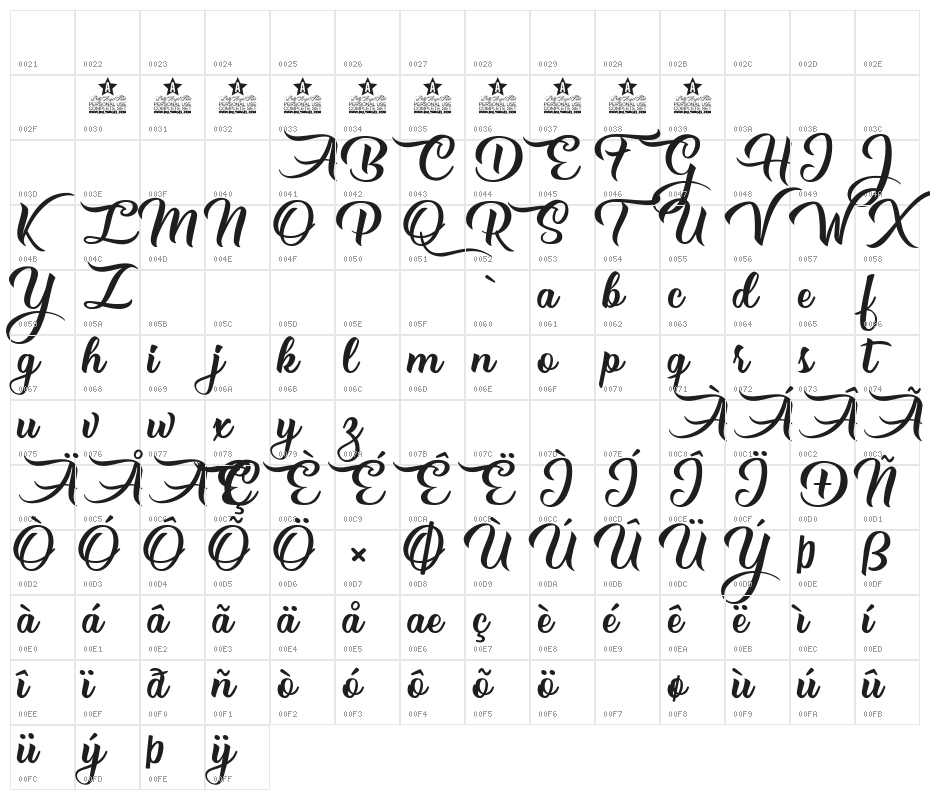 0021 0022 0023 0024 0025 0026 0027 0028 0029 002A 002B 002C 002D 002E
A A A A A A A A A A
PERSONAL USE PERSONAL USE PERSONAL USE PERSONAL USE PERSONAL USE PERSONAL USE PERSONAL USE PERSONAL USE PERSONAL USE PERSONAL USE
COMPLETE SET COMPLETE SET COMPLETE SET COMPLETE SET COMPLETE SET COMPLETE SET COMPLETE SET COMPLETE SET COMPLETE SET COMPLETE SET
002F 0030 0031 0032 0033 0034 0035 0036 0037 0038 0039 003A 003B 003C
A B C D E F G H I J
003D 003E 003F 0040 0041 0042 0043 0044 0045 0046 0047 0048 0049 004A
K L M N O P Q R S T U V W X
004B 004C 004D 004E 004F 0050 0051 0052 0053 0054 0055 0056 0057 0058
Y Z ` a b c d e f
0059 005A 005B 005C 005D 005E 005F 0060 0061 0062 0063 0064 0065 0066
g h i j k l m n o p q r s t
0067 0068 0069 006A 006B 006C 006D 006E 006F 0070 0071 0072 0073 0074
u v w x y z À Á Â Ã
0075 0076 0077 0078 0079 007A 007B 007C 007D 007E 00C0 00C1 00C2 00C3
Ä Å Æ Ç È É Ê Ë Ì Í Î Ï Ð Ñ
00C4 00C5 00C6 00C7 00C8 00C9 00CA 00CB 00CC 00CD 00CE 00CF 00D0 00D1
Ò Ó Ô Õ Ö × Ø Ù Ú Û Ü Ý Þ ß
00D2 00D3 00D4 00D5 00D6 00D7 00D8 00D9 00DA 00DB 00DC 00DD 00DE 00DF
à á â ã ä å æ ç è é ê ë ì í
00E0 00E1 00E2 00E3 00E4 00E5 00E6 00E7 00E8 00E9 00EA 00EB 00EC 00ED
î ï ð ñ ò ó ô õ ö ø ù ú û
00EE 00EF 00F0 00F1 00F2 00F3 00F4 00F5 00F6 00F7 00F8 00F9 00FA 00FB
ü ý þ ÿ
00FC 00FD 00FE 00FF